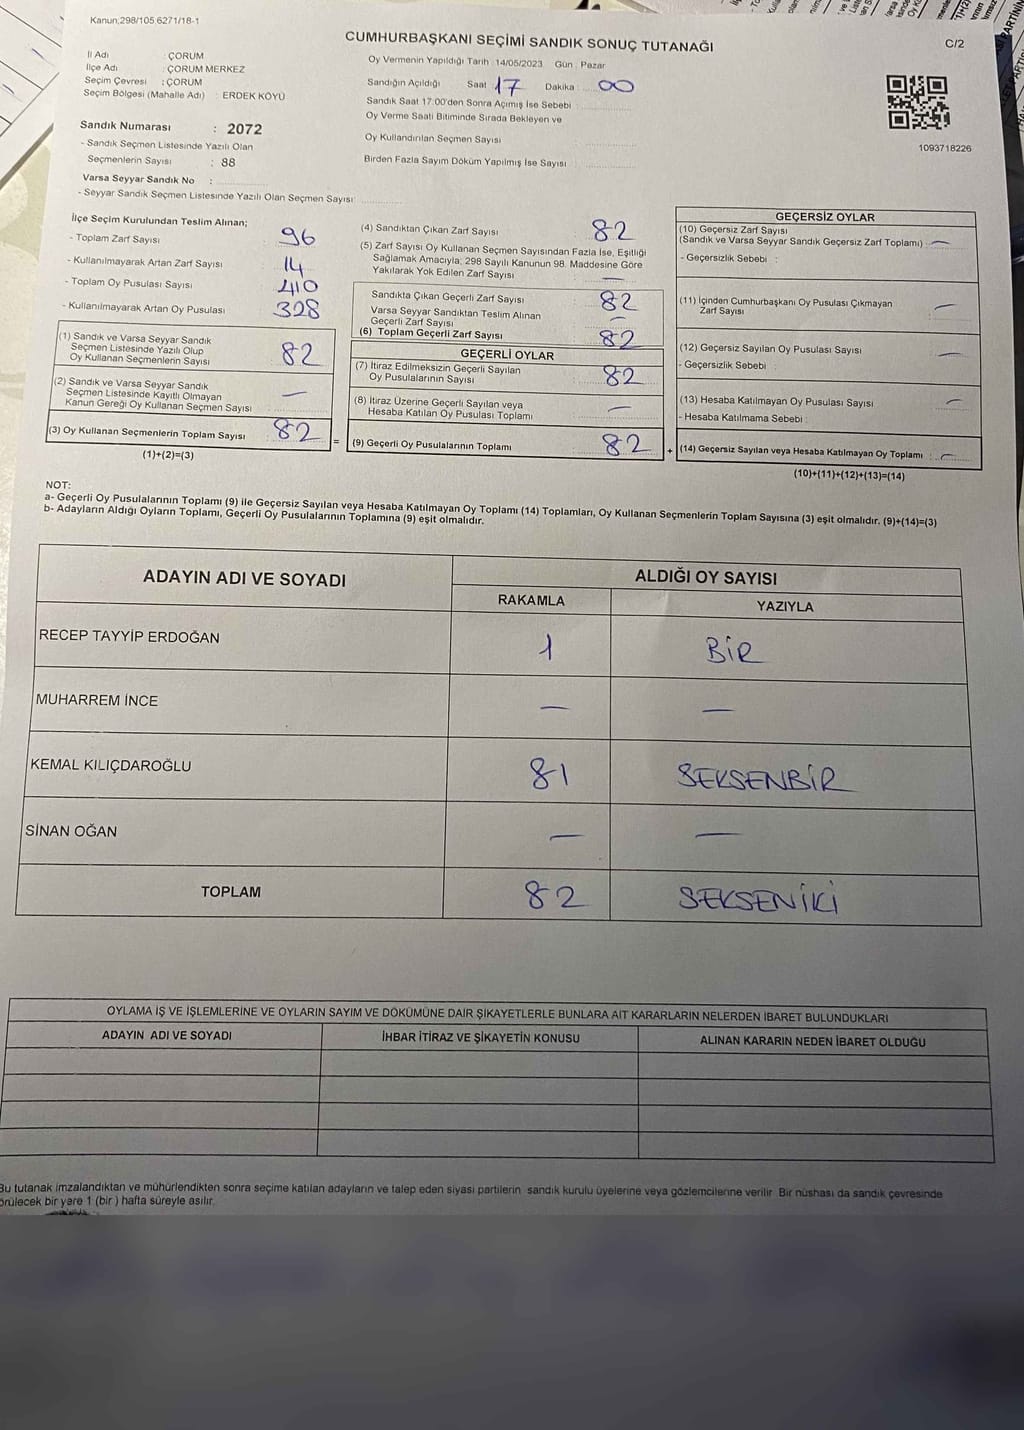 Kanun,298/105 6271/18-1
CUMHURBAŞKANI SEÇİMİ SANDIK SONUÇ TUTANAĞI
C/2
İl Adı : ÇORUM
İlçe Adı : ÇORUM MERKEZ
Seçim Çevresi : ÇORUM
Seçim Bölgesi (Mahalle Adı) : ERDEK KÖYÜ
Sandık Numarası : 2072
- Sandık Seçmen Listesinde Yazılı Olan
Seçmenlerin Sayısı : 88
Varsa Seyyar Sandık No :
- Seyyar Sandık Seçmen Listesinde Yazılı Olan Seçmen Sayısı:
Oy Vermenin Yapıldığı Tarih :14/05/2023 Gün : Pazar
Sandığın Açıldığı Saat : 17 Dakika : 00
Sandık Saat 17:00'den Sonra Açımış İse Sebebi :
Oy Verme Saati Bitiminde Sırada Bekleyen ve
Oy Kullandırılan Seçmen Sayısı :
Birden Fazla Sayım Döküm Yapılmış İse Sayısı :
1093718226
İlçe Seçim Kurulundan Teslim Alınan;
- Toplam Zarf Sayısı : 96
- Kullanılmayarak Artan Zarf Sayısı : 14
- Toplam Oy Pusulası Sayısı : 410
- Kullanılmayarak Artan Oy Pusulası : 328
(1) Sandık ve Varsa Seyyar Sandık
Seçmen Listesinde Yazılı Olup
Oy Kullanan Seçmenlerin Sayısı : 82
(2) Sandık ve Varsa Seyyar Sandık
Seçmen Listesinde Kayıtlı Olmayan
Kanun Gereği Oy Kullanan Seçmen Sayısı : —
(3) Oy Kullanan Seçmenlerin Toplam Sayısı : 82 =
(1)+(2)=(3)
(4) Sandıktan Çıkan Zarf Sayısı : 82
(5) Zarf Sayısı Oy Kullanan Seçmen Sayısından Fazla İse, Eşitliği
Sağlamak Amacıyla; 298 Sayılı Kanunun 98. Maddesine Göre
Yakılarak Yok Edilen Zarf Sayısı : —
Sandıkta Çıkan Geçerli Zarf Sayısı : 82
Varsa Seyyar Sandıktan Teslim Alınan
Geçerli Zarf Sayısı : —
(6) Toplam Geçerli Zarf Sayısı : 82
GEÇERLİ OYLAR
(7) İtiraz Edilmeksizin Geçerli Sayılan
Oy Pusulalarının Sayısı : 82
(8) İtiraz Üzerine Geçerli Sayılan veya
Hesaba Katılan Oy Pusulası Toplamı : —
(9) Geçerli Oy Pusulalarının Toplamı : 82 +
GEÇERSİZ OYLAR
(10) Geçersiz Zarf Sayısı
(Sandık ve Varsa Seyyar Sandık Geçersiz Zarf Toplamı) : —
- Geçersizlik Sebebi :
(11) İçinden Cumhurbaşkanı Oy Pusulası Çıkmayan
Zarf Sayısı : —
(12) Geçersiz Sayılan Oy Pusulası Sayısı : —
- Geçersizlik Sebebi :
(13) Hesaba Katılmayan Oy Pusulası Sayısı : —
- Hesaba Katılmama Sebebi :
(14) Geçersiz Sayılan veya Hesaba Katılmayan Oy Toplamı : —
(10)+(11)+(12)+(13)=(14)
NOT:
a- Geçerli Oy Pusulalarının Toplamı (9) ile Geçersiz Sayılan veya Hesaba Katılmayan Oy Toplamı (14) Toplamları, Oy Kullanan Seçmenlerin Toplam Sayısına (3) eşit olmalıdır. (9)+(14)=(3)
b- Adayların Aldığı Oyların Toplamı, Geçerli Oy Pusulalarının Toplamına (9) eşit olmalıdır.
ADAYIN ADI VE SOYADI ALDIĞI OY SAYISI
RAKAMLA YAZIYLA
RECEP TAYYİP ERDOĞAN 1 BİR
MUHARREM İNCE — —
KEMAL KILIÇDAROĞLU 81 SEKSENBİR
SİNAN OĞAN — —
TOPLAM 82 SEKSENİKİ
OYLAMA İŞ VE İŞLEMLERİNE VE OYLARIN SAYIM VE DÖKÜMÜNE DAİR ŞİKAYETLERLE BUNLARA AİT KARARLARIN NELERDEN İBARET BULUNDUKLARI
ADAYIN ADI VE SOYADI İHBAR İTİRAZ VE ŞİKAYETİN KONUSU ALINAN KARARIN NEDEN İBARET OLDUĞU
Bu tutanak imzalandıktan ve mühürlendikten sonra seçime katılan adayların ve talep eden siyasi partilerin sandık kurulu üyelerine veya gözlemcilerine verilir. Bir nüshası da sandık çevresinde
örülecek bir yere 1 (bir ) hafta süreyle asılır.